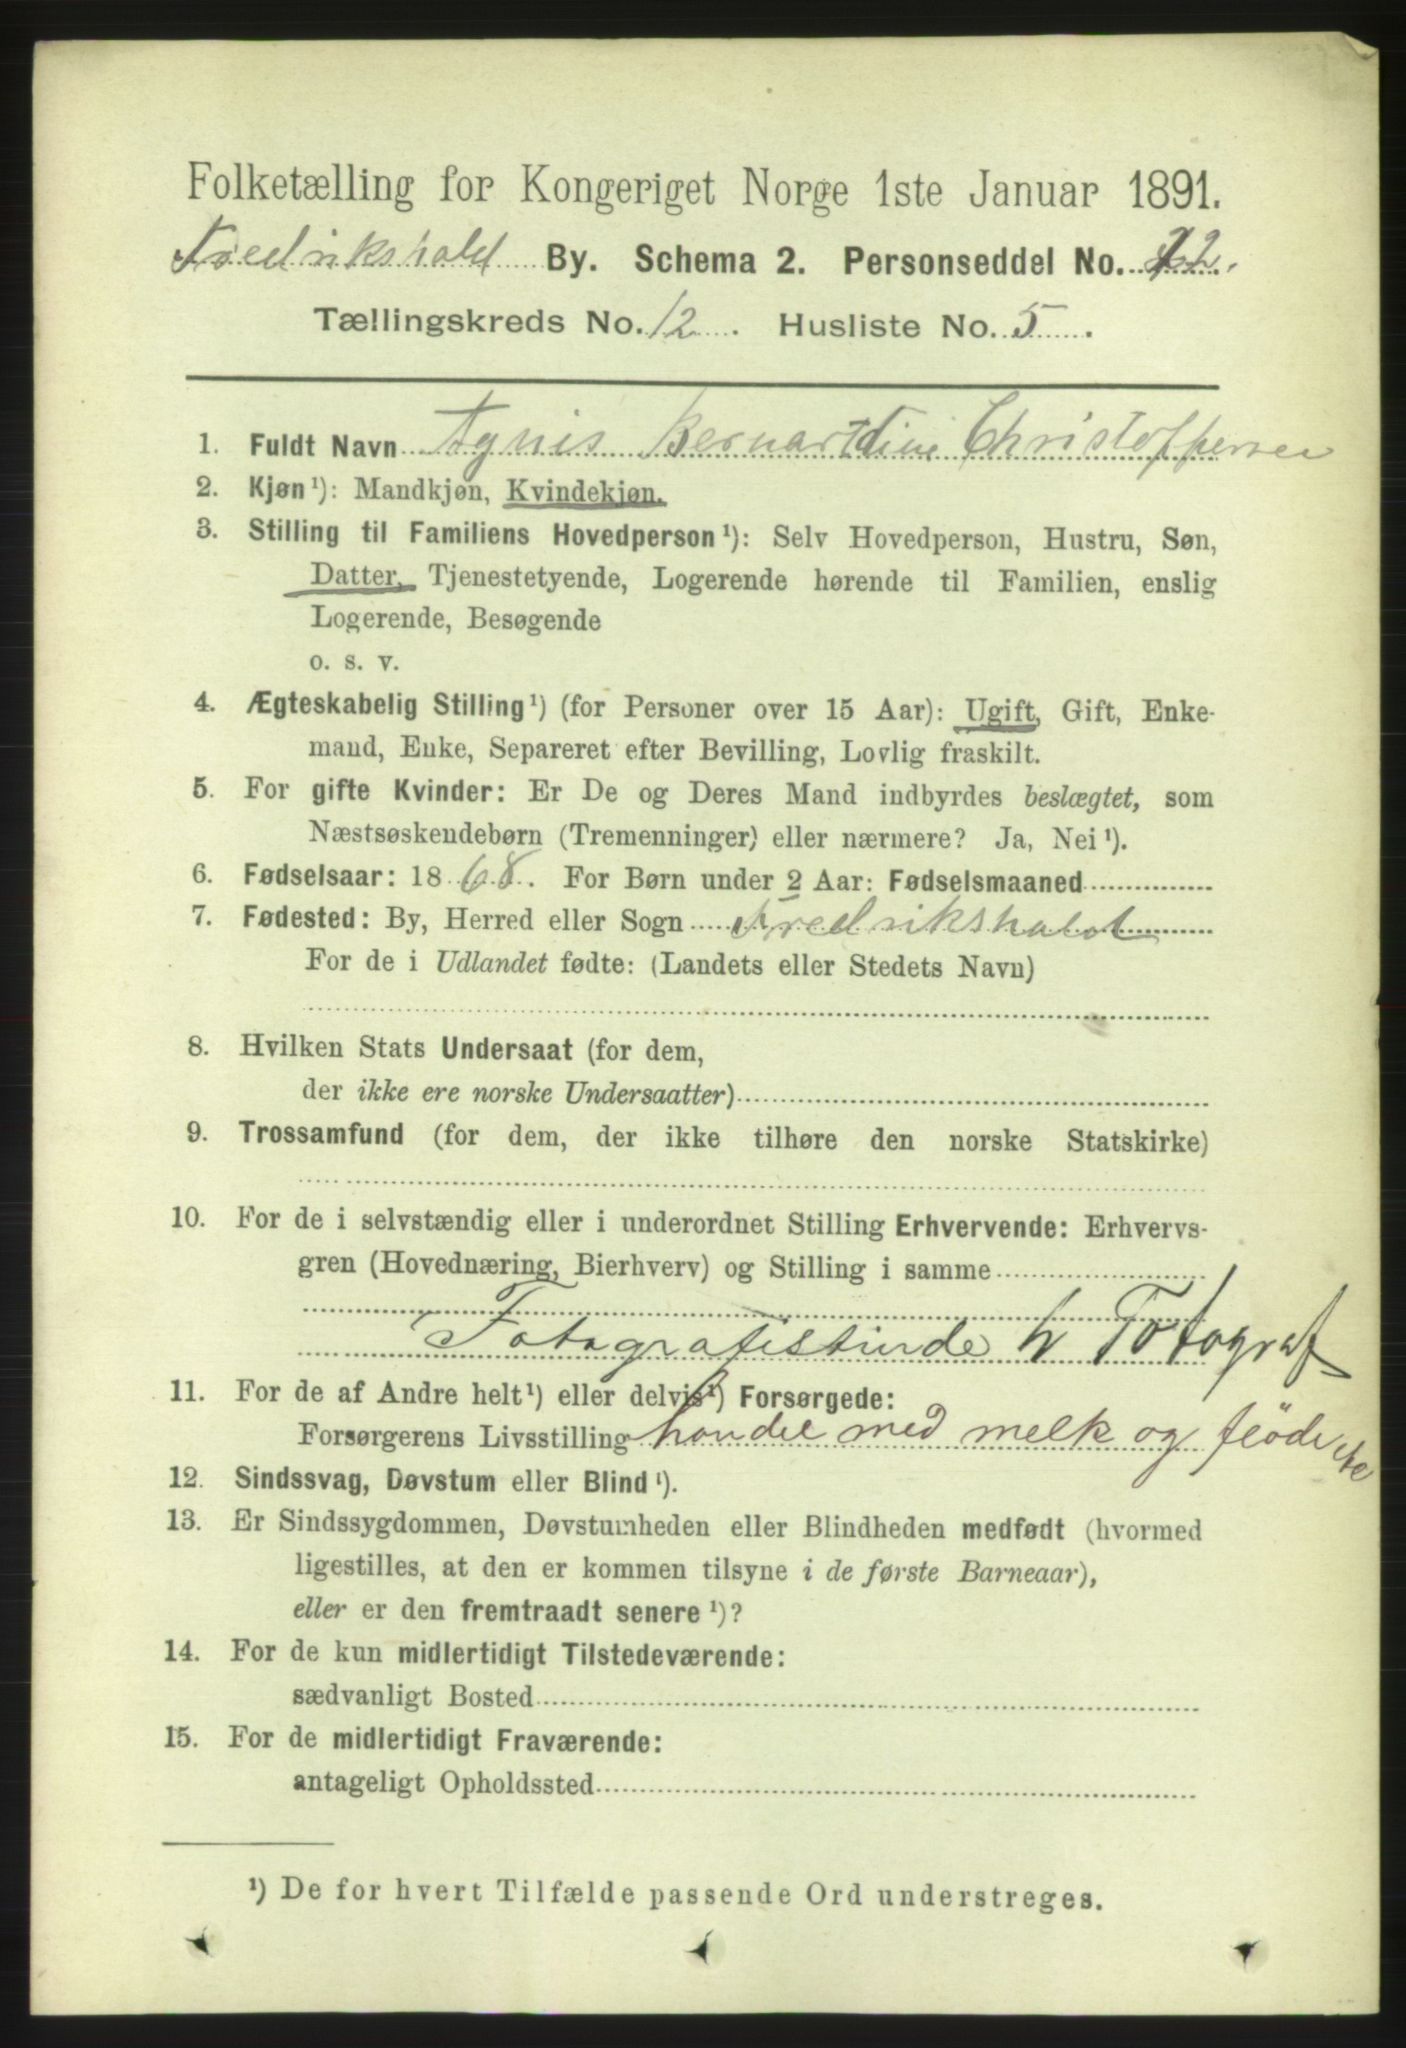 Folketælling for Kongeriget Norge 1ste Januar 1891.
Fredrikshald By. Schema 2. Personseddel No. 12.
Tællingskreds No. 12. Husliste No. 5.
1. Fuldt Navn Agnis Bernartdine Christoffersen
2. Kjøn ¹): Mandkjøn, Kvindekjøn.
3. Stilling til Familiens Hovedperson ¹): Selv Hovedperson, Hustru, Søn,
Datter, Tjenestetyende, Logerende hørende til Familien, enslig
Logerende, Besøgende
o. s. v.
4. Ægteskabelig Stilling ¹) (for Personer over 15 Aar): Ugift, Gift, Enke-
mand, Enke, Separeret efter Bevilling, Lovlig fraskilt.
5. For gifte Kvinder: Er De og Deres Mand indbyrdes beslægtet, som
Næstsøskendebørn (Tremenninger) eller nærmere? Ja, Nei ¹).
6. Fødselsaar: 1868. For Børn under 2 Aar: Fødselsmaaned
7. Fødested: By, Herred eller Sogn Fredrikshald
For de i Udlandet fødte: (Landets eller Stedets Navn)
8. Hvilken Stats Undersaat (for dem,
der ikke ere norske Undersaatter)
9. Trossamfund (for dem, der ikke tilhøre den norske Statskirke)
10. For de i selvstændig eller i underordnet Stilling Erhvervende: Erhvervs-
gren (Hovednæring, Bierhverv) og Stilling i samme
Fotografistinde h Fotograf
11. For de af Andre helt ¹) eller delvis ¹) Forsørgede:
Forsørgerens Livsstilling handel med melk og fløde etc
12. Sindssvag, Døvstum eller Blind ¹).
13. Er Sindssygdommen, Døvstumheden eller Blindheden medfødt (hvormed
ligestilles, at den er kommen tilsyne i de første Barneaar),
eller er den fremtraadt senere ¹)?
14. For de kun midlertidigt Tilstedeværende:
sædvanligt Bosted
15. For de midlertidigt Fraværende:
antageligt Opholdssted
¹) De for hvert Tilfælde passende Ord understreges.